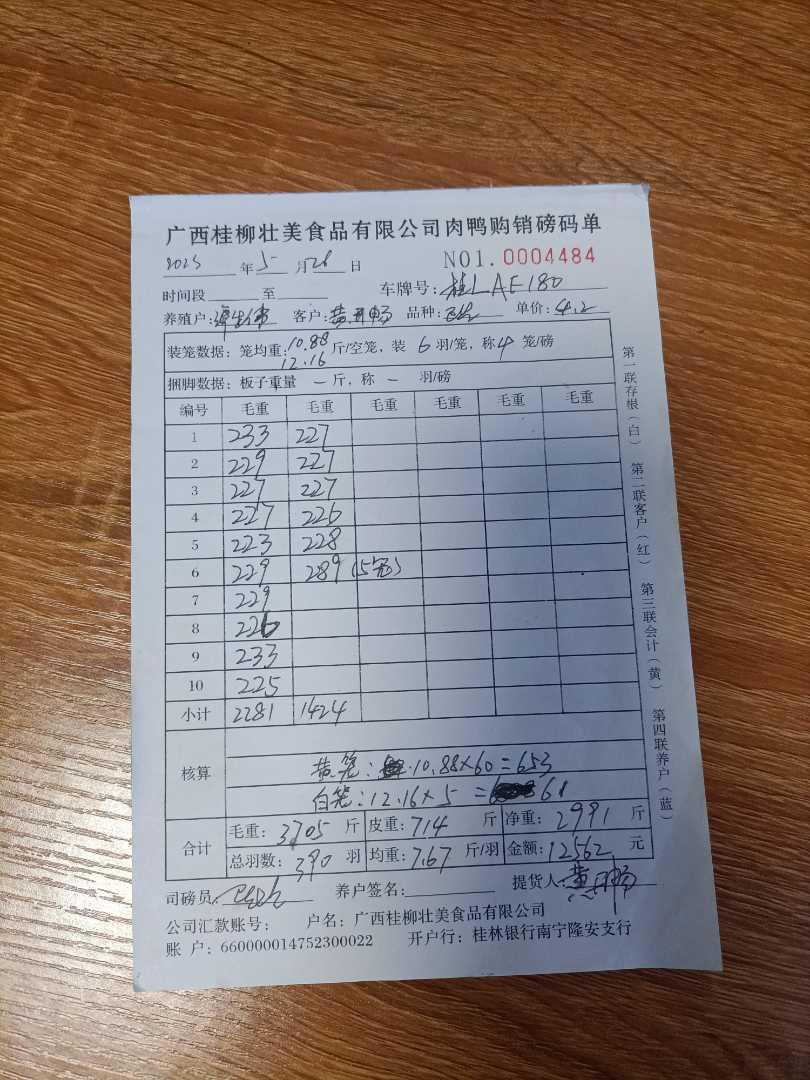 广西桂柳壮美食品有限公司肉鸭购销磅码单
2025年5月28日 NO1.0004484
时间段 至 车牌号:桂LAE180
养殖户: 客户:黄丹畅 品种: 单价:4.2
装笼数据:笼均重:10.88 12.16斤/空笼,装6羽/笼,称4笼/磅
捆脚数据:板子重量 — 斤,称 — 羽/磅
编号 毛重 毛重 毛重 毛重 毛重 毛重
1 233 227
2 229 227
3 227 227
4 227 226
5 223 228
6 229 289(5笼)
7 229
8 226
9 233
10 225
小计 2281 1424
核算
黄笼:10.88×60=653
白笼:12.16×5=61
合计
毛重:3705斤 皮重:714斤 净重:2991斤
总羽数:390羽 均重:7.67斤/羽 金额:12562元
司磅员: 养户签名: 提货人:黄丹畅
公司汇款账号: 户名:广西桂柳壮美食品有限公司
账 户:660000014752300022 开户行:桂林银行南宁隆安支行
第一联存根(白) 第二联客户(红) 第三联会计(黄) 第四联养户(蓝)